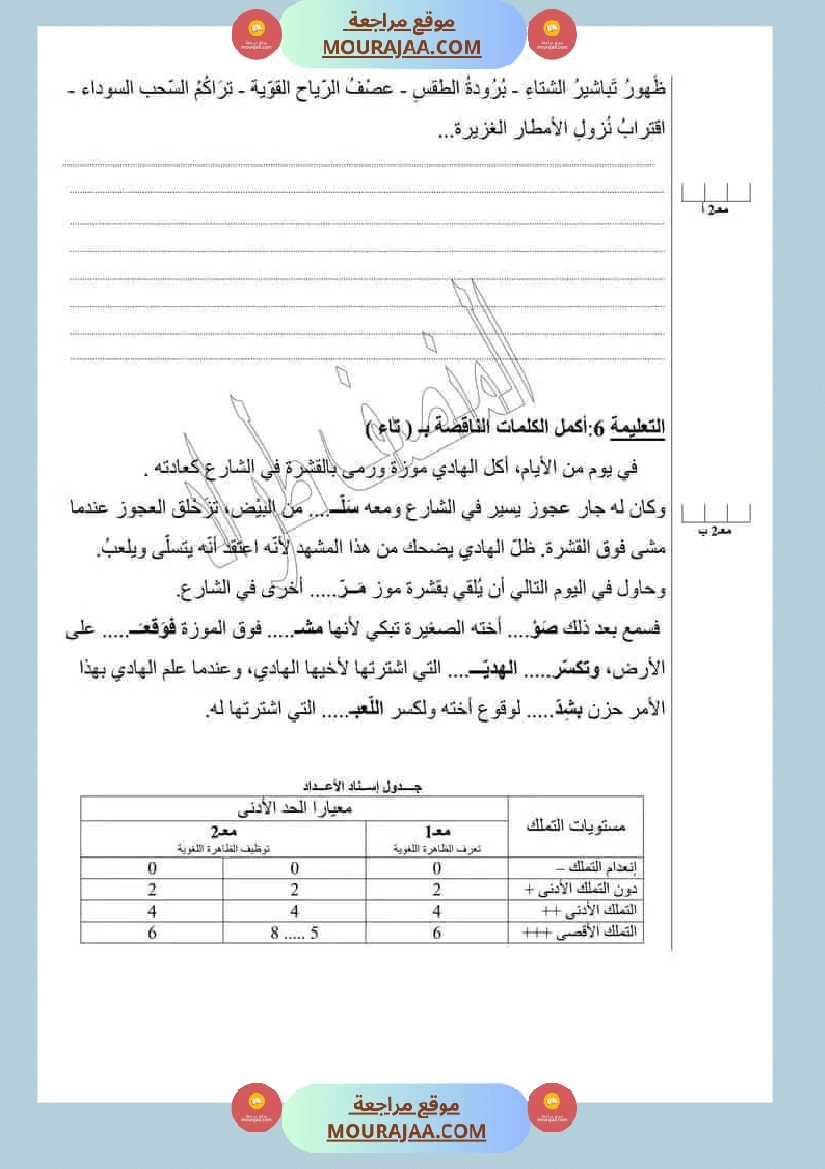 موقع مراجعة
MOURAJAA.COM
ظُهورُ تَباشيرُ الشتاءِ - بُرُودةُ الطقسِ - عصْفُ الرّياح القوّية - ترَاكُمُ السّحب السوداء -
اقتِرابُ نُزولِ الأمطار الغزيرة...
معـ2 أ
التعليمة 6:أكمل الكلمات الناقصة بـ ( تاء )
في يوم من الأيام، أكل الهادي موزة ورمى بالقشرة في الشارع كعادته .
وكان له جار عجوز يسير في الشارع ومعه سَلّــ.... من البيْض، تزحْلق العجوز عندما
معـ2 ب
مشى فوق القشرة. ظلّ الهادي يضحك من هذا المشهد لأنّه اعتقد أنّه يتسلّى ويلعبُ.
وحاول في اليوم التالي أن يُلقي بقشرة موز مَــرّ..... أخرى في الشارع.
فسمع بعد ذلك صَوْ.... أخته الصغيرة تبكي لأنها مشـ..... فوق الموزة فَوَقعَـ..... على
الأرض، وتكسّر..... الهديّـــ.... التي اشترتها لأخيها الهادي، وعندما علم الهادي بهذا
الأمر حزن بشِدّ..... لوقوع أخته ولكسر اللّعبـ..... التي اشترتها له.
جـــدول إسـناد الأعــداد
مستويات التملك معيارا الحد الأدنى
معـ1 معـ2
تعرف الظاهرة اللغوية توظيف الظاهرة اللغوية
إنعدام التملك – 0 0 0
دون التملك الأدنى + 2 2 2
التملك الأدنى ++ 4 4 4
التملك الأقصى +++ 6 5 ..... 8 6
موقع مراجعة
MOURAJAA.COM